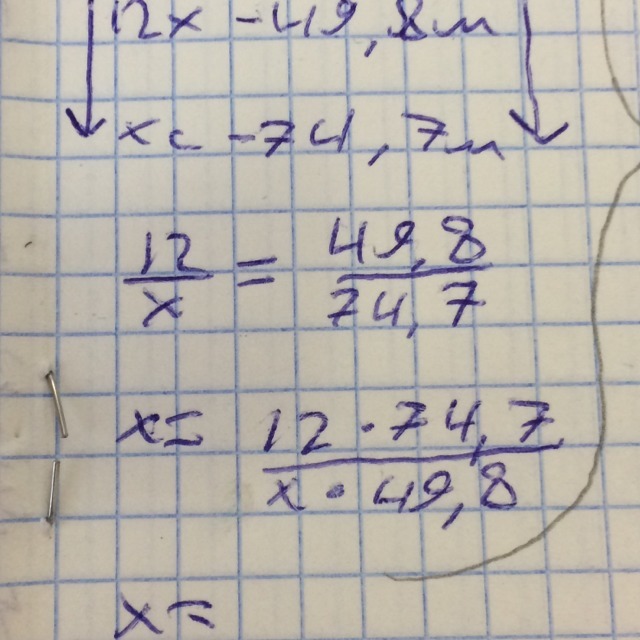 12x - 49,8м
xc - 74,7м
12/x = 49,8/74,7
x = 12·74,7/x·49,8
x =